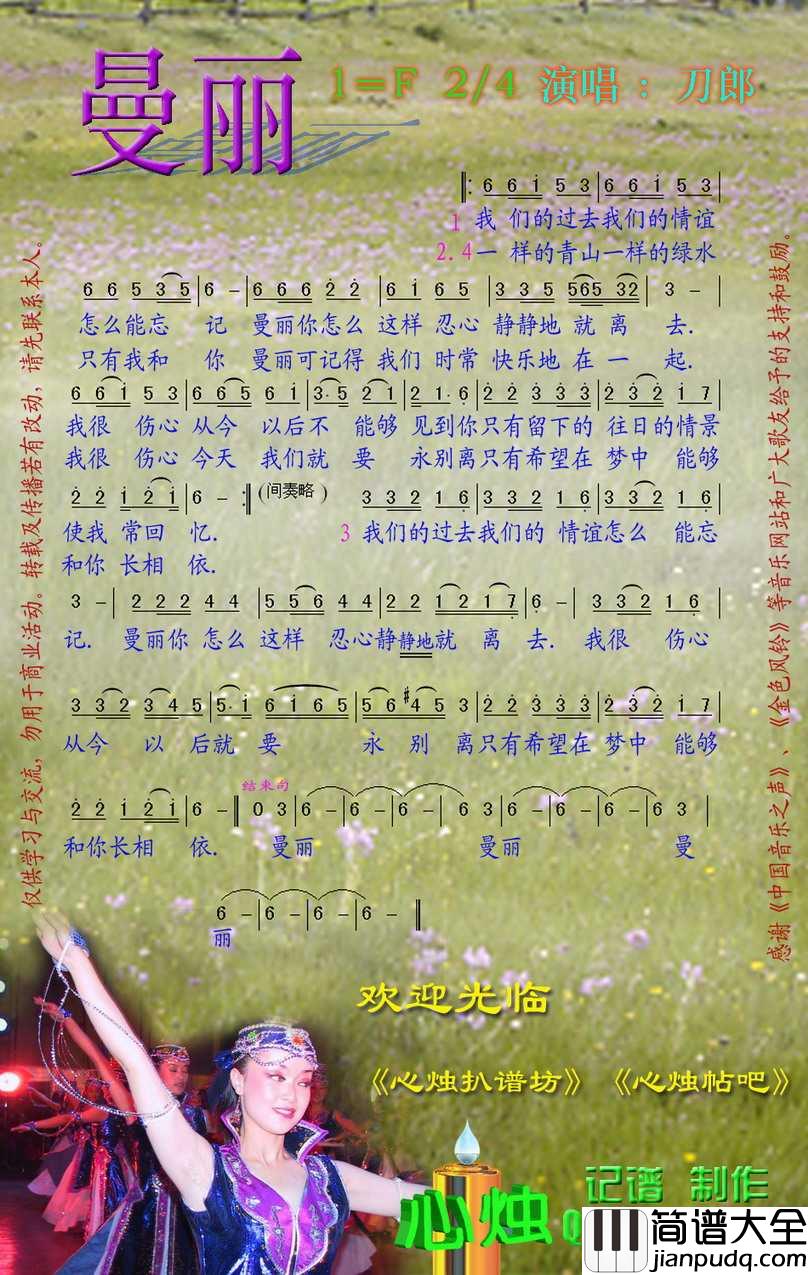 曼丽
1=F 2/4 演唱：刀郎
6 6 i 5 3 | 6 6 i 5 3 |
1 我 们的过去我们的情谊
2.4 一 样的青山一样的绿水
6 6 6 5 3 5 | 6 - | 6 6 6 2 2 | 6 i 6 5 | 3 3 5 565 32 | 3 - |
怎么能忘 记 曼丽你怎么 这样 忍心 静静地 就 离 去.
只有我和 你 曼丽可记得 我们 时常 快乐地 在 一 起.
6 6 i 5 3 | 6 6 5 6 i | 3· 5 2 1 | 2 1· 6 | 2 2 3 3 3 | 2 3 2 i 7 |
我很 伤心 从今 以后不 能够 见到你只有留下的 往日的情景
我很 伤心 今天 我们就 要 永别离只有希望在 梦中 能够
2 2 i 2 i | 6 - :|| (间奏略) 3 3 2 1 6 | 3 3 2 1 6 | 3 3 2 1 6 |
使我 常回 忆. 3 我们的过去我们的 情谊怎么 能忘
和你 长相 依.
3 - | 2 2 2 4 4 | 5 5 6 4 4 | 2 2 1 2 1 7 | 6 - | 3 3 2 1 6 |
记. 曼丽你 怎么 这样 忍心静静地就 离 去. 我很 伤心
3 3 2 3 4 5 | 5· i | 6 i 6 5 | 5 6 #4 5 3 | 2 2 3 3 3 | 2 3 2 i 7 |
从今 以 后就 要 永 别 离只有希望在 梦中 能够
结束句
2 2 i 2 i | 6 - || 0 3 | 6 - | 6 - | 6 3 | 6 - | 6 - | 6 - | 6 3 |
和你长相 依. 曼丽 曼丽 曼
6 - | 6 - | 6 - | 6 - ||
丽
仅供学习与交流，勿用于商业活动。转载及传播若有改动，请先联系本人。
感谢《中国音乐之声》、《金色风铃》等音乐网站和广大歌友给予的支持和鼓励。
欢迎光临
《心烛扒谱坊》《心烛帖吧》
记谱 制作
心烛
简谱大全
jianpudq.com